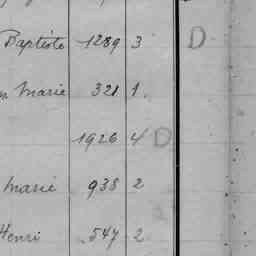 Baptiste 1289 3 D
Marie 321 1
1926 4 D
Marie 938 2
Henri 547 2